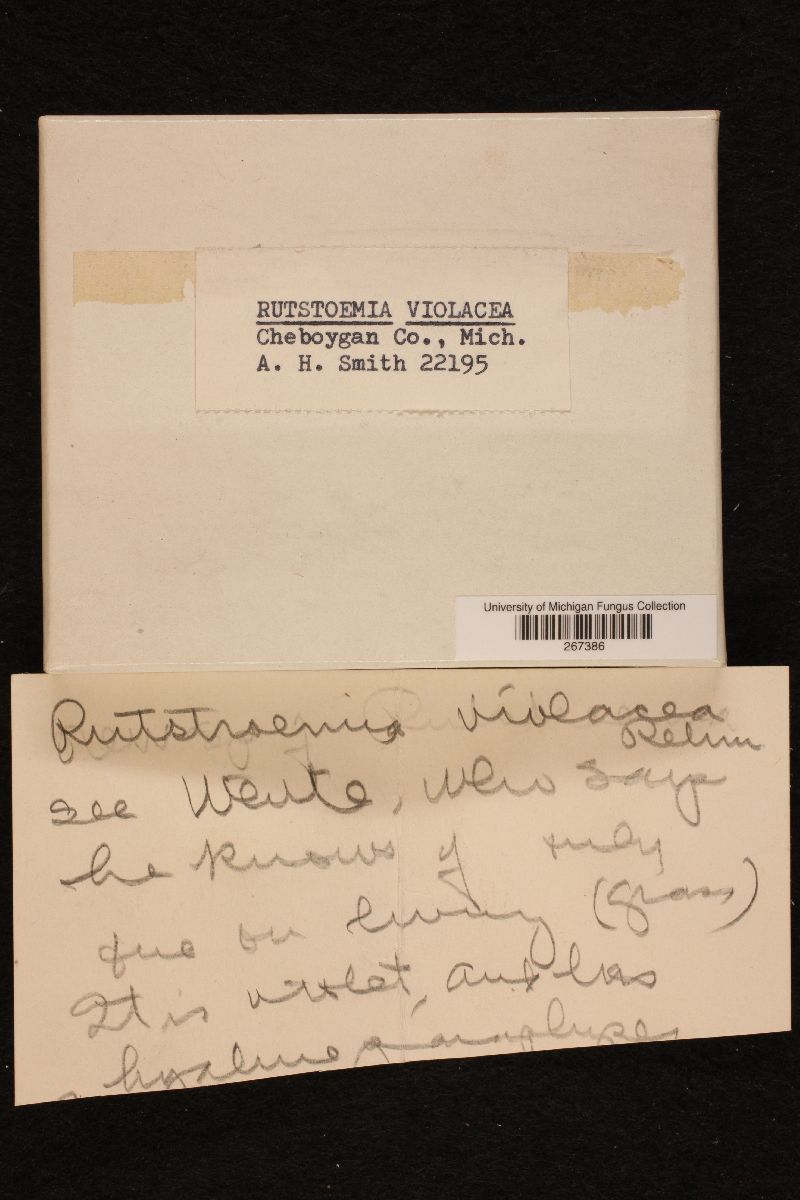 RUTSTOEMIA VIOLACEA
Cheboygan Co., Mich.
A. H. Smith 22195
University of Michigan Fungus Collection
267386
Rutstroemia violacea
Rehm
see White, who says
he knows of only
one on living (grass)
It is violet, and has
hyaline paraphyses